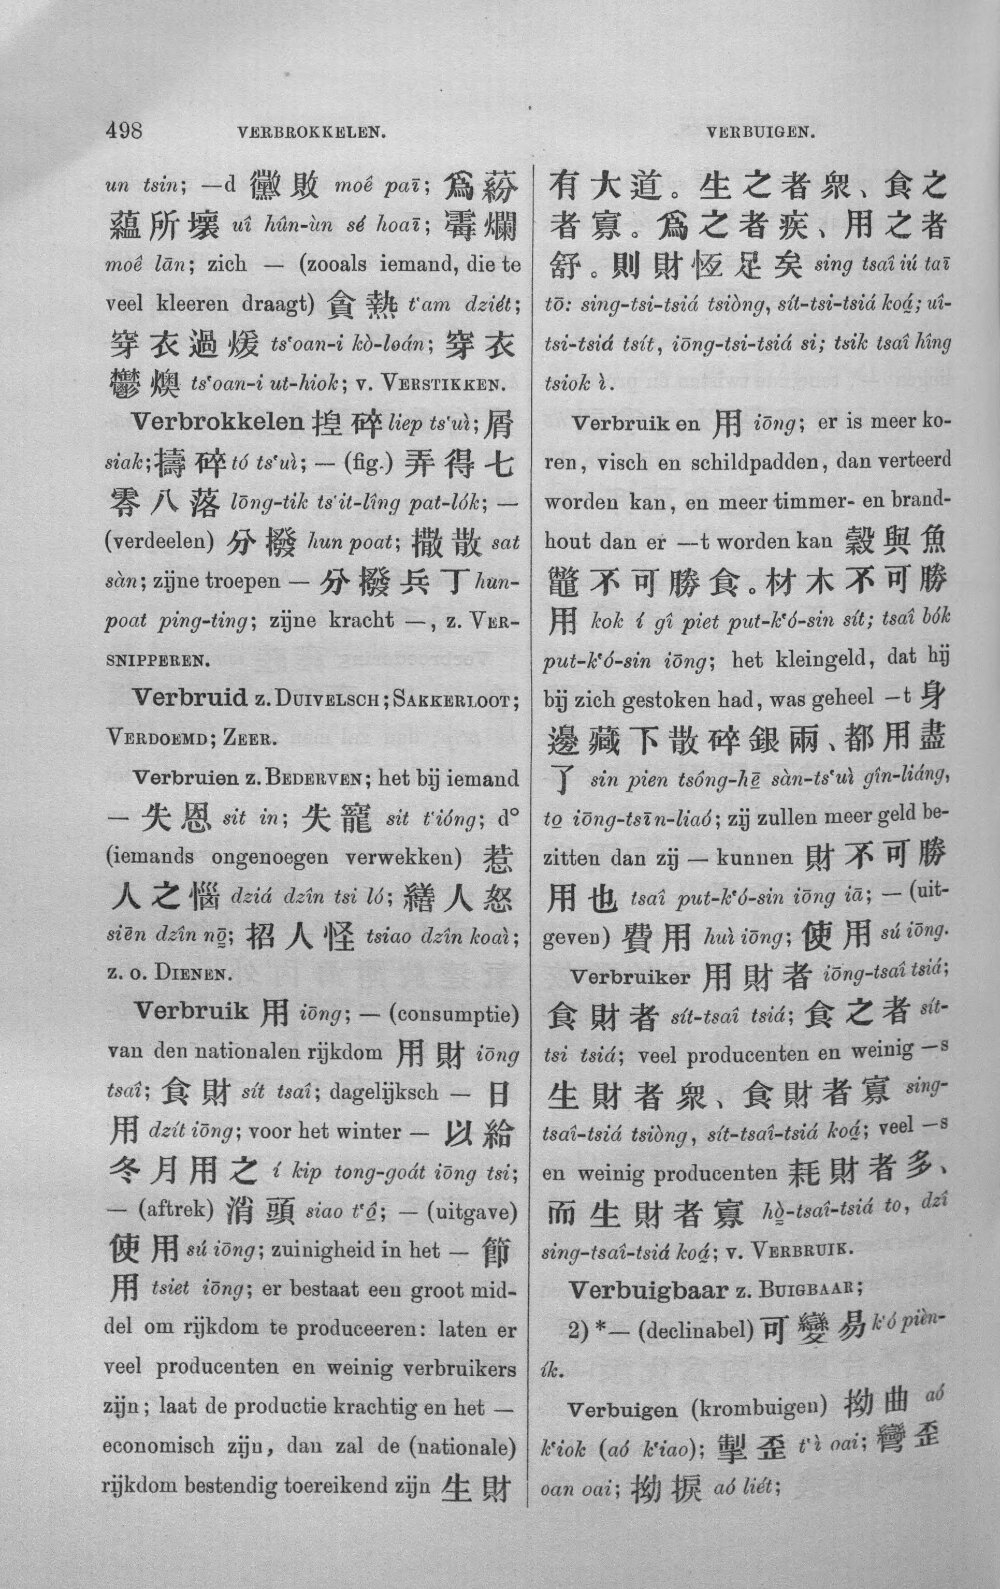 498 VERBROKKELEN. VERBUIGEN.
un tsin; —d 黴敗 moê paī; 爲蒶
蘊所壞 uî hûn-ùn sé hoaī; 霉爛
moê lān; zich — (zooals iemand, die te
veel kleeren draagt) 貪熱 t‘am dziét;
穿衣過煖 ts‘oan-i kò-loán; 穿衣
鬱燠 ts‘oan-i ut-hiok; v. VERSTIKKEN.
Verbrokkelen 揑碎 liep ts‘uì; 屑
siak; 擣碎 tó ts‘uì; — (fig.) 弄得七
零八落 lōng-tik ts‘it-lîng pat-lók; —
(verdeelen) 分撥 hun poat; 撒散 sat
sàn; zijne troepen — 分撥兵丁 hun-
poat ping-ting; zijne kracht —, z. VER-
SNIPPEREN.
Verbruid z. DUIVELSCH; SAKKERLOOT;
VERDOEMD; ZEER.
Verbruien z. BEDERVEN; het bij iemand
— 失恩 sit in; 失寵 sit t‘ióng; d°
(iemands ongenoegen verwekken) 惹
人之惱 dziá dzîn tsi ló; 繕人怒
siēn dzîn nō͘; 招人怪 tsiao dzîn koaì;
z. o. DIENEN.
Verbruik 用 iōng; — (consumptie)
van den nationalen rijkdom 用財 iōng
tsaî; 食財 sít tsaî; dagelijksch — 日
用 dzít iōng; voor het winter — 以給
冬月用之 í kip tong-goát iōng tsi;
— (aftrek) 消頭 siao t‘ô̤; — (uitgave)
使用 sú iōng; zuinigheid in het — 節
用 tsiet iōng; er bestaat een groot mid-
del om rijkdom te produceeren: laten er
veel producenten en weinig verbruikers
zijn; laat de productie krachtig en het —
economisch zijn, dan zal de (nationale)
rijkdom bestendig toereikend zijn 生財
有大道。生之者衆、食之
者寡。爲之者疾、用之者
舒。則財恆足矣 sing tsaî iú taī
tō: sing-tsi-tsiá tsiòng, sít-tsi-tsiá koá̤; uî-
tsi-tsiá tsít, iōng-tsi-tsiá si; tsik tsaî hîng
tsiok ì.
Verbruiken 用 iōng; er is meer ko-
ren, visch en schildpadden, dan verteerd
worden kan, en meer timmer- en brand-
hout dan er —t worden kan 穀與魚
鼈不可勝食。材木不可勝
用 kok í gî piet put-k‘ó-sin sít; tsaî bók
put-k‘ó-sin iōng; het kleingeld, dat hij
bij zich gestoken had, was geheel —t 身
邊藏下散碎銀兩、都用盡
了 sin pien tsông-hē̤ sàn-ts‘uì gîn-liáng,
to̤ iōng-tsīn-liaó; zij zullen meer geld be-
zitten dan zij — kunnen 財不可勝
用也 tsaî put-k‘ó-sin iōng iā; — (uit-
geven) 費用 huì iōng; 使用 sú iōng.
Verbruiker 用財者 iōng-tsaî tsiá;
食財者 sít-tsaî tsiá; 食之者 sít-
tsi tsiá; veel producenten en weinig —s
生財者衆、食財者寡 sing-
tsaî-tsiá tsiòng, sít-tsaî-tsiá koá̤; veel —s
en weinig producenten 耗財者多、
而生財者寡 hò̤-tsaî-tsiá to, dzî
sing-tsaî-tsiá koá̤; v. VERBRUIK.
Verbuigbaar z. BUIGBAAR;
2) *— (declinabel) 可變易 k‘ó pièn-
ík.
Verbuigen (krombuigen) 拗曲 aó
k‘iok (aó k‘iao); 掣歪 t‘ì oai; 彎歪
oan oai; 拗捩 aó liét;